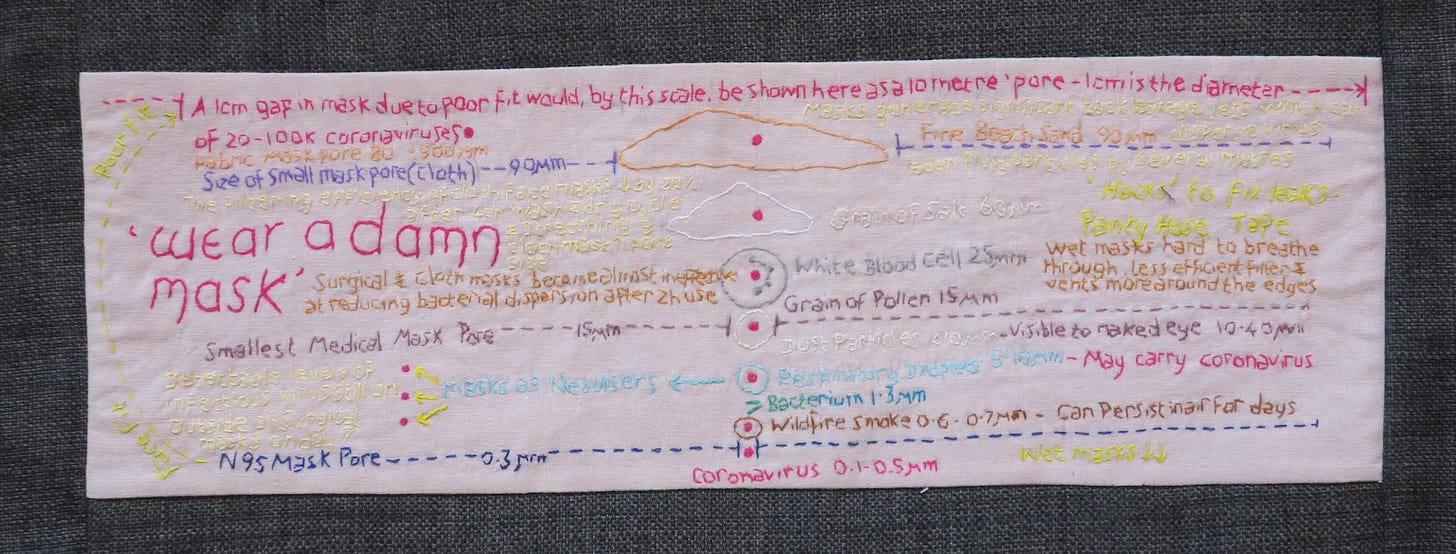 A 1cm gap in mask due to poor fit would, by this scale, be shown here as a 10 metre 'pore - 1cm is the diameter
of 20-100K coronaviruses
Poor Fit
Masks generate significant back leakage jets which can
disperse virus
laden fluid particles by several metres
Fine Beach Sand 90µm
Fabric mask pore 80 - 500µm
Size of small mask pore (cloth) 90µm
The filtering efficiency of cloth face masks ↓ by 20%
after 4th wash & dry cycle
& stretching a
cloth mask ↑ pore
size
Grain of Salt 60µm
'Hacks' to fix leaks-
Panty Hose Tape
'wear a damn
mask'
Surgical & cloth masks become almost
at reducing bacterial dispersion after 2h use
White Blood Cell 25µm
Wet masks hard to breathe
through, less efficient filter &
vents more around the edges
Grain of Pollen 15µm
Smallest Medical Mask Pore 15µm
Dust Particles <10µm - Visible to naked eye 10-40µm
Respiratory Droplets 5-10µm - May carry coronavirus
Masks as Nebulisers
Detectable levels of
infectious virus still on
outside of surgical
masks on day 7
Bacterium 1.3µm
Wildfire smoke 0.6 - 0.7µm - Can Persist in air for days
N95 Mask Pore 0.3µm
Wet masks ↓↓
Coronavirus 0.1-0.5µm